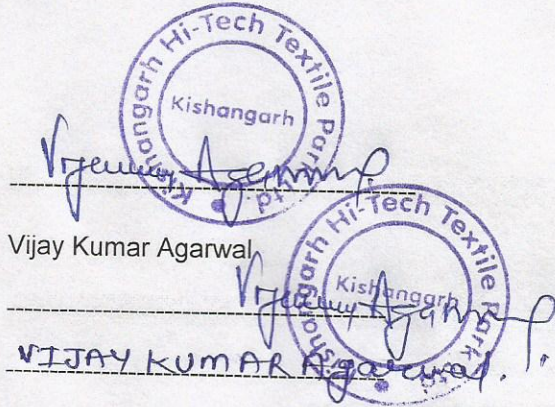 Kishangarh Hi-Tech Textile Park Ltd.
Kishangarh
Vijay Kumar Agarwal
Kishangarh Hi-Tech Textile Park Ltd.
Kishangarh
VIJAY KUMAR Agarwal.